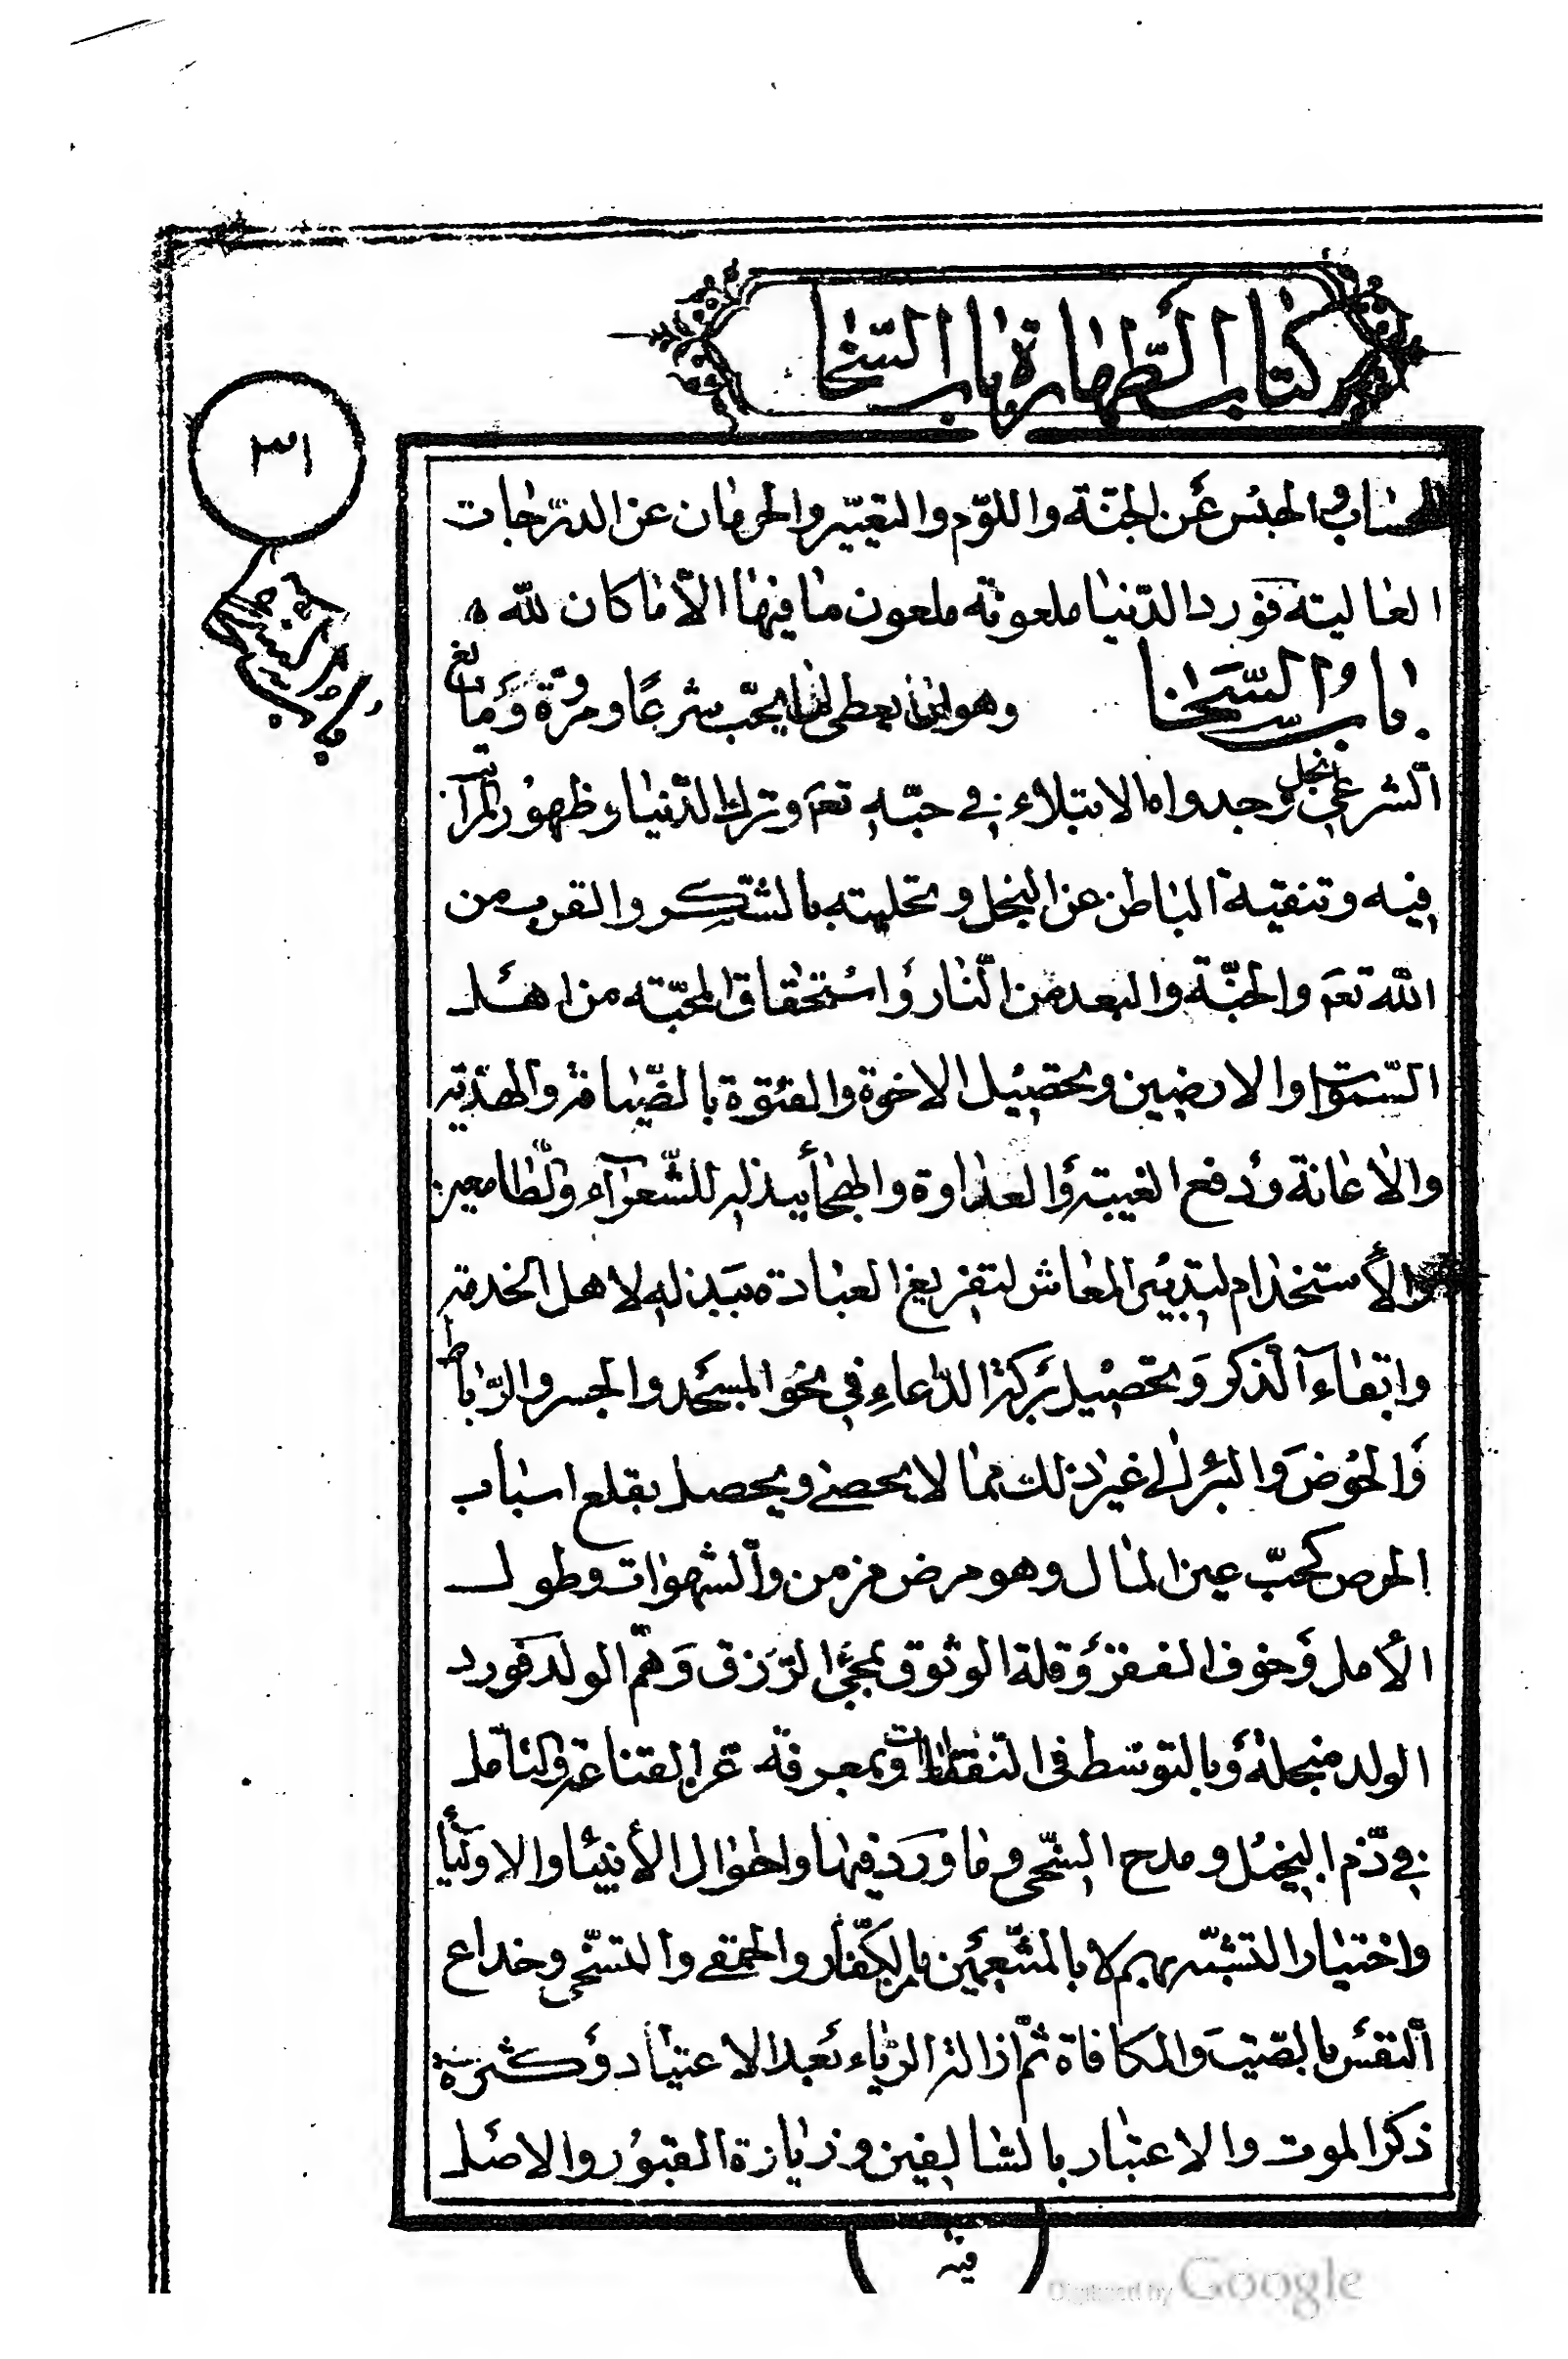 كتاب الطهارة باب السخا
٣١
الحساب والحبس عن الجنة واللوم والتعيير والحرمان عن الدرجات
العالية فورد الدنيا ملعونة ملعون ما فيها الا ما كان لله
باب السخا وهو ان يعطى لما يجب شرعا ومروة وما نع
الشرعى بخل وجدواه الابتلاء فى حبه تعم وترك الدنيا وظهور المرآتية
فيه وتنقية الباطن عن البخل وتحليته بالشكر والقرب من
الله تعم والجنة والبعد من النار واستحقاق المحبة من اهل
السموات والارضين وتحصيل الاخوة والفتوة بالضيافة والهدية
والاعانة ودفع الغيبة والعداوة والهجا ببذله للشعرآء والطامعين
والاستخدام لتدبير المعاش لتفريغ العبادة ببذله لاهل الخدمة
وابقاء الذكر وتحصيل بركة الدعاء فى نحو المسجد والجسر والرباط
والحوض والبئر الى غير ذلك مما لا يحصى ويحصل بقلع اسباب
الحرص كحب عين المال وهو مرض مزمن والشهوات وطول
الامل وخوف الفقر وقلة الوثوق بمجئ الرزق وهم الولد فورد
الولد مبخلة وبالتوسط فى النفقات وبمعرفة عز القناعة والتأمل
فى ذم البخل ومدح السخى وما ورد فيها واحوال الأنبيا والاوليآ
واختيار التشبه بهم لا بالمتنعمين بالكفار والحمقى والتسخى وخداع
النفس بالصيت والمكافاة ثم ازالة الرياء بعد الاعتياد وكثرة
ذكر الموت والاعتبار بالسالفين وزيارة القبور والاصل
فيه
Digitized by Google